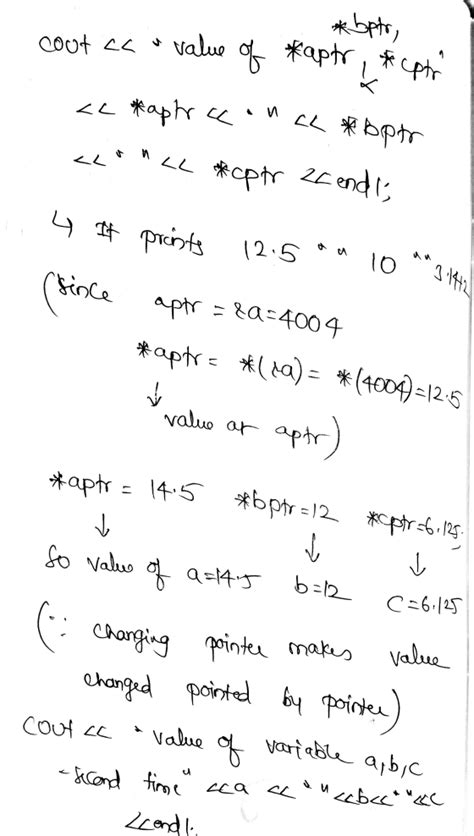 *bptr,
cout << " value of *aptr, & *cptr"
<< *aptr << " " << *bptr
<< " " << *cptr << endl;
↳ It prints 12.5 " " 10 " " 3.1412
(since aptr = &a = 4004
*aptr = *(&a) = *(4004) = 12.5
↓
value at aptr)
*aptr = 14.5 *bptr = 12 *cptr = 6.125.
↓ ↓ ↓
So value of a = 14.5 b = 12 c = 6.125
(∵ changing pointer makes value
changed pointed by pointer)
cout << " value of variable a,b,c
second time" << a << " " << b << " " << c
<< endl;